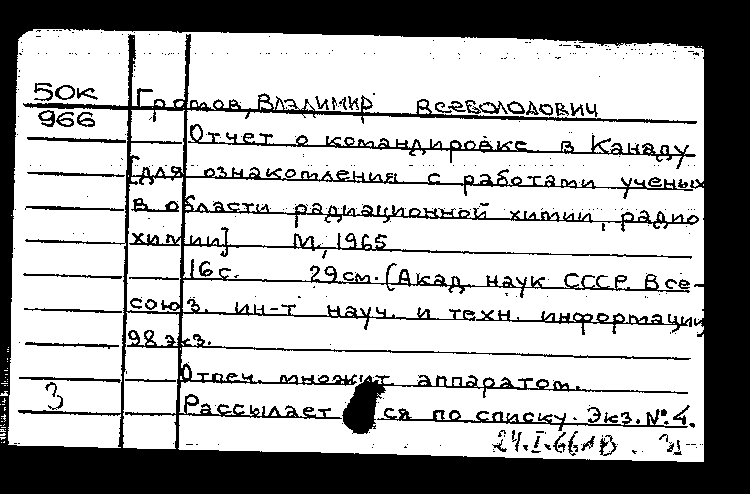 50к
966
Громов, Владимир Всеволодович
Отчет о командировке в Канаду
[для ознакомления с работами ученых
в области радиационной химии, радио
химии] М., 1965
16 с. 29 см. (Акад. наук СССР. Все-
союз. ин-т науч. и техн. информации
98 экз.
Отпеч. множит аппаратом.
3 Рассылает ся по списку. Экз. №4.
24.I.66